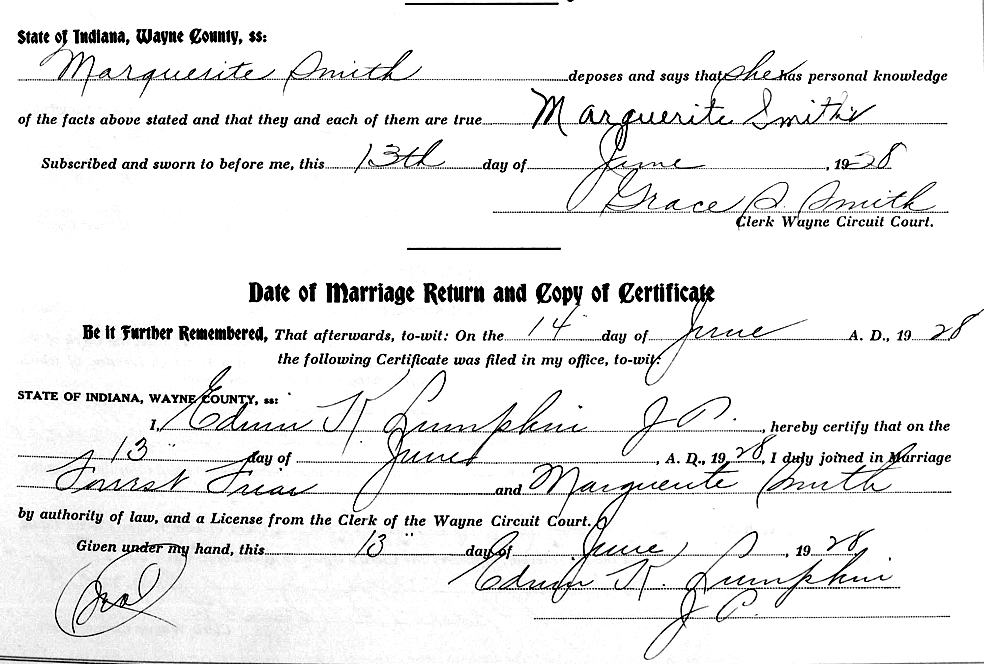 State of Indiana, Wayne County, ss:
Marguerite Smith deposes and says that she has personal knowledge
of the facts above stated and that they and each of them are true Marguerite Smith
Subscribed and sworn to before me, this 13th day of June, 1928
Grace S. Smith
Clerk Wayne Circuit Court.
Date of Marriage Return and Copy of Certificate
Be it Further Remembered, That afterwards, to-wit: On the 14 day of June A. D., 1928
the following Certificate was filed in my office, to-wit:
STATE OF INDIANA, WAYNE COUNTY, ss:
I, Edwin K Lumpkin J P., hereby certify that on the
13" day of June, A. D., 1928, I duly joined in Marriage
Forrest Friar and Marguerite Smith
by authority of law, and a License from the Clerk of the Wayne Circuit Court.
Given under my hand, this 13" day of June, 1928
Edwin K. Lumpkin
J P.